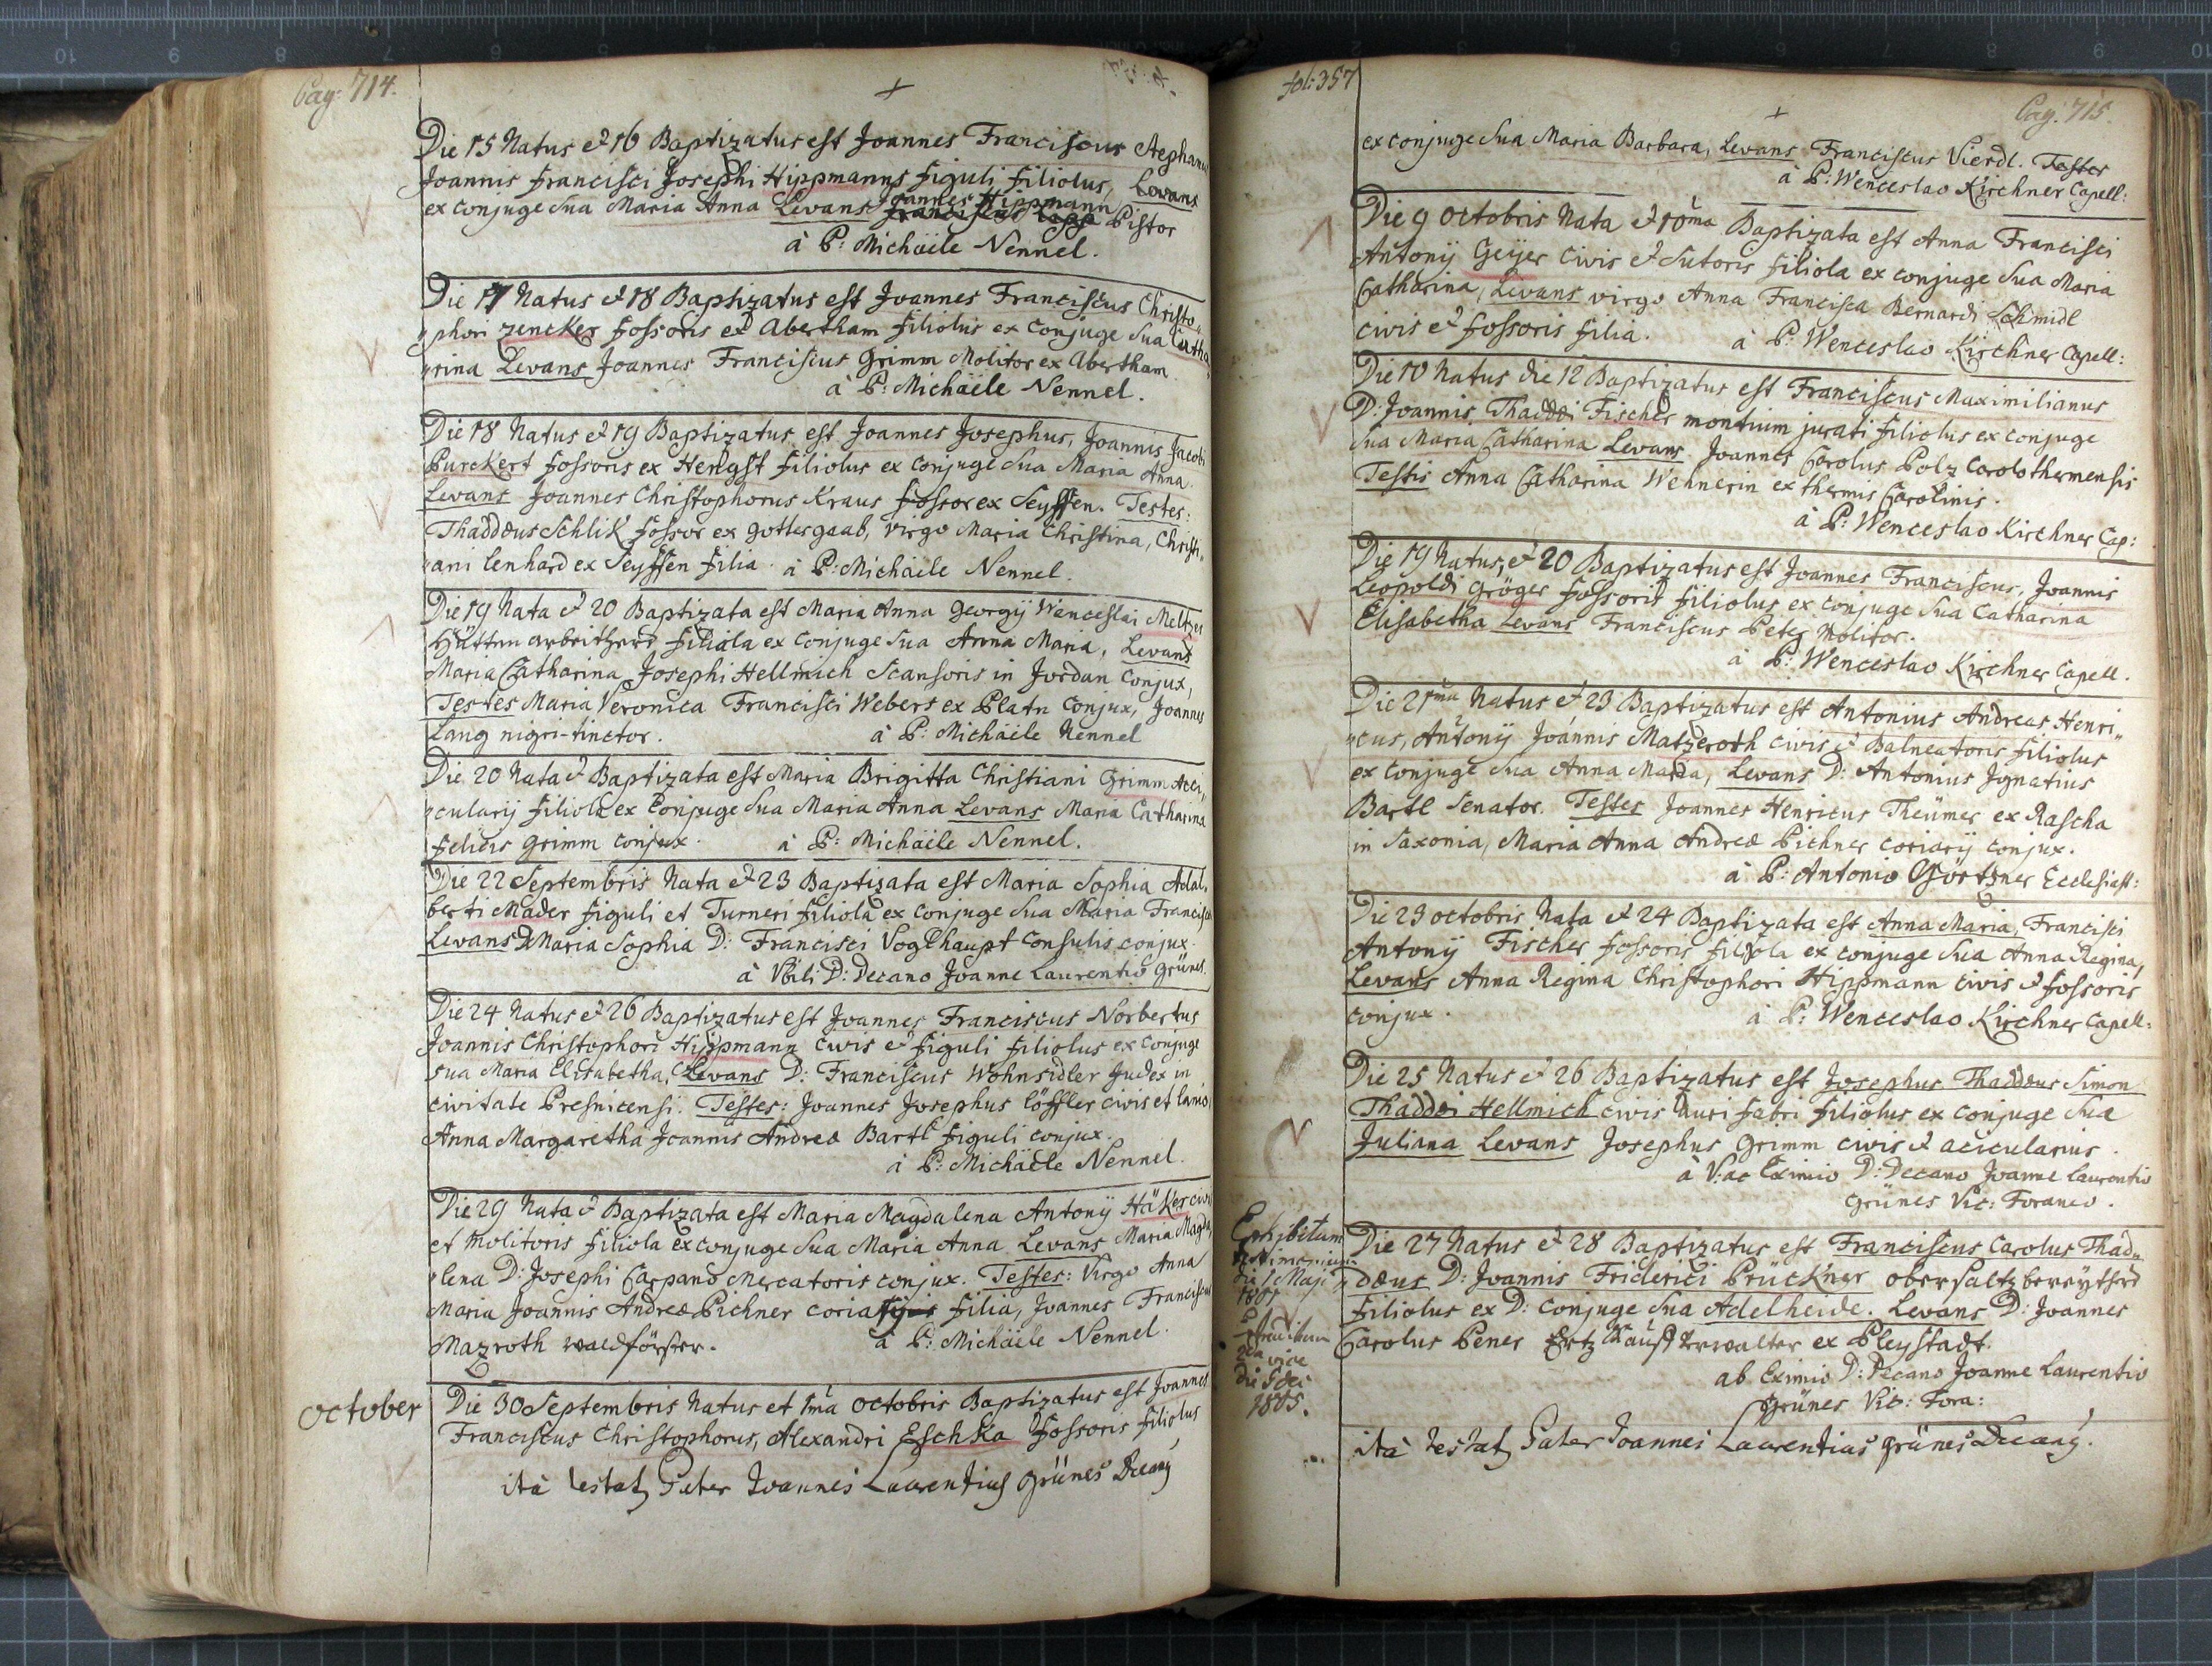 Pag: 714.
Die 15 Natus et 16 Baptizatus est Joannes Franciscus Stephanus
Joannis Francisci Josephi Hippmanns figuli filiolus, Levans
ex conjuge sua Maria Anna Levans Joannes Hippmann Pistor
à P: Michäele Nennel.
Die 17 Natus et 18 Baptizatus est Joannes Franciscus Christo„
„phori Zencker fossoris ex Abertham filiolus ex conjuge sua Catha„
„rina Levans Joannes Franciscus Grimm Molitor ex Abertham
à P: Michäele Nennel.
Die 18 Natus et 19 Baptizatus est Joannes Josephus, Joannis Jacobi
Purckert fossoris ex Hengst filiolus ex conjuge sua Maria Anna.
Levans Joannes Christophorus Kraus fossor ex Seyffen. Testes:
Thaddæus Schlik fossor ex gottesgaab, virgo Maria Christina, Christi„
„ani Lenhard ex Seyffen filia. à P: Michäele Nennel.
Die 19 Nata et 20 Baptizata est Maria Anna Georgij Wenceslai Meltzer
Hütten arbeithers filiola ex conjuge sua Anna Maria, Levans
Maria Catharina Josephi Hellmich Scansoris in Jordan conjux,
Testes Maria Veronica Francisci Webers ex Platn conjux, Joannes
Lang nigri-tinctor. à P: Michäele Nennel
Die 20 Nata et Baptizata est Maria Brigitta Christiani Grimm Aci„
„cularij filiola ex conjuge sua Maria Anna Levans Maria Catharina
felicis Grimm conjux. à P: Michäele Nennel.
Die 22 Septembris Nata et 23 Baptizata est Maria Sophia Adal„
berti Mader figuli et Turneri filiola ex conjuge sua Maria Francisca
Levans D Maria Sophia D: Francisci Voglhaupt Consulis conjux.
à Vbili D: Decano Joanne Laurentio Grünes.
Die 24 Natus et 26 Baptizatus est Joannes Franciscus Norbertus
Joannis Christophori Hippmann civis et figuli filiolus ex conjuge
sua Maria Elisabetha, Levans D: Franciscus Wohnsidler Judex in
civitate Presnicensi. Testes: Joannes Josephus Löffler civis et lanio,
Anna Margaretha Joannis Andreæ Bartl figuli conjux.
à P: Michäele Nennel.
Die 29 Nata et Baptizata est Maria Magdalena Antonij Häker civis
et molitoris filiola ex conjuge sua Maria Anna Levans Maria Magda
„lena D: Josephi Carpano Mercatoris conjux. Testes: Virgo Anna
Maria Joannis Andreæ Pichner coriarij filia, Joannes Franciscus
Mazroth waldförster. à P: Michäele Nennel.
October
Die 30 Septembris Natus et 1ma octobris Baptizatus est Joannes
Franciscus Christophorus, Alexandri Eschka fossoris filiolus
ità testat Pater Joannes Laurentius Grünes Decang
fol: 357
Pag: 715.
ex conjuge sua Maria Barbara, Levans Franciscus Vierdl. Testes
à P: Wenceslao Kirchner Capell:
Die 9 octobris Nata et 10ma Baptizata est Anna Francisci
Antonij Geijer civis et Sutoris filiola ex conjuge sua Maria
Catharina, Levans virgo Anna Francisca Bernardi Schmidl
civis et fossoris filia. à P: Wenceslao Kirchner Capell:
Die 10 Natus die 12 Baptizatus est Franciscus Maximilianus
D: Joannis Thaddæi Fischer montium jurati filiolus ex conjuge
sua Maria Catharina Levans Joannes Carolus Polz Carolothermensis
Testis Anna Catharina Wehnerin ex thermis Carolinis.
à P: Wenceslao Kirchner Cap:
Die 19 Natus, et 20 Baptizatus est Joannes Franciscus, Joannis
Leopoldi Gröger fossoris filiolus ex conjuge sua Catharina
Elisabetha Levans Franciscus Peter Molitor.
à P: Wenceslao Kirchner Capell.
Die 21ma Natus et 23 Baptizatus est Antonius Andreas Henri„
„cus, Antonij Joannis Matzeroth civis et Balneatoris filiolus
ex conjuge sua Anna Maria, Levans D: Antonius Ignatius
Bartl Senator. Testes Joannes Henricus Theümer ex Rascha
in Saxonia, Maria Anna Andreæ Pichner coriarij conjux.
à P: Antonio Görtner Ecclesiast:
Die 23 octobris Nata et 24 Baptizata est Anna Maria, Francisci
Antonij Fischer fossoris filiola ex conjuge sua Anna Regina,
Levans Anna Regina Christophori Hippmann civis et fossoris
conjux. à P: Wenceslao Kirchner Capell:
Die 25 Natus et 26 Baptizatus est Josephus Thaddæus Simon
Thaddæi Hellmich civis Auri fabri filiolus ex conjuge sua
Juliana Levans Josephus Grimm civis et acicularius.
à V: ac Eximio D: Decano Joanne Laurentio
Grünes Vic: Foraneo.
Exhibitum
die 1 Maji
2da vice
1805.
Die 27 Natus et 28 Baptizatus est Franciscus Carolus Thad„
„dæus D: Joannis Friderici Prückner obersaltzbereythers
filiolus ex D: conjuge sua Adelheide. Levans D: Joannes
Carolus Pener Ertz Kauff Verwalter ex Pleystadt.
ab Eximio D: Decano Joanne Laurentio
Grünes Vic: Fora:
ità testat Pater Joannes Laurentius Grünes Decang.